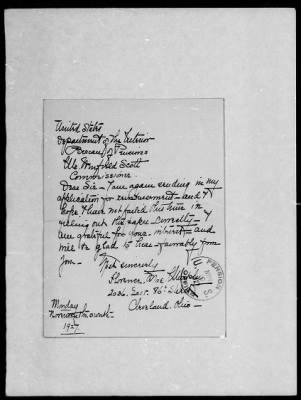 United States
Department of the Interior
Bureau of Pensions
Winfield Scott
Commissioner.
Dear Sir – I am again sending in my
application for reimbursement – and I
hope I have not failed this time in
filling out the paper correctly – I
am grateful for your interest – and
will be glad to hear favorably from
you –
Most sincerely
Florence Mae
2006. East. 86th
Cleveland. Ohio –
Monday
1927.